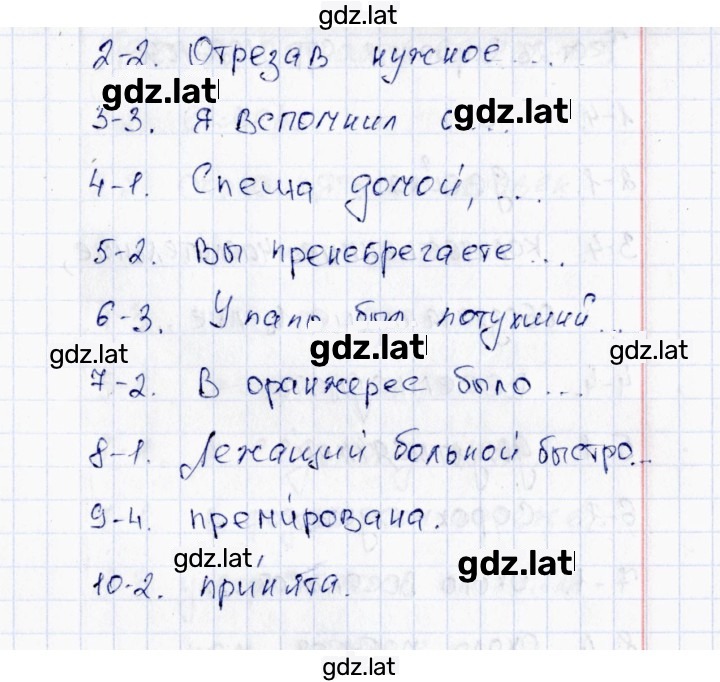 gdz.lat
2-2. Отрезав нужное ...
gdz.lat
3-3. Я вспомнил с...
gdz.lat
4-1. Спеша домой, ...
5-2. Вы пренебрегаете ...
6-3. У папы был потухший ...
gdz.lat gdz.lat gdz.lat
7-2. В оранжерее было ...
8-1. Лежащий больной быстро...
9-4. преми́рована.
gdz.lat gdz.lat
10-2. при́нята.
gdz.lat